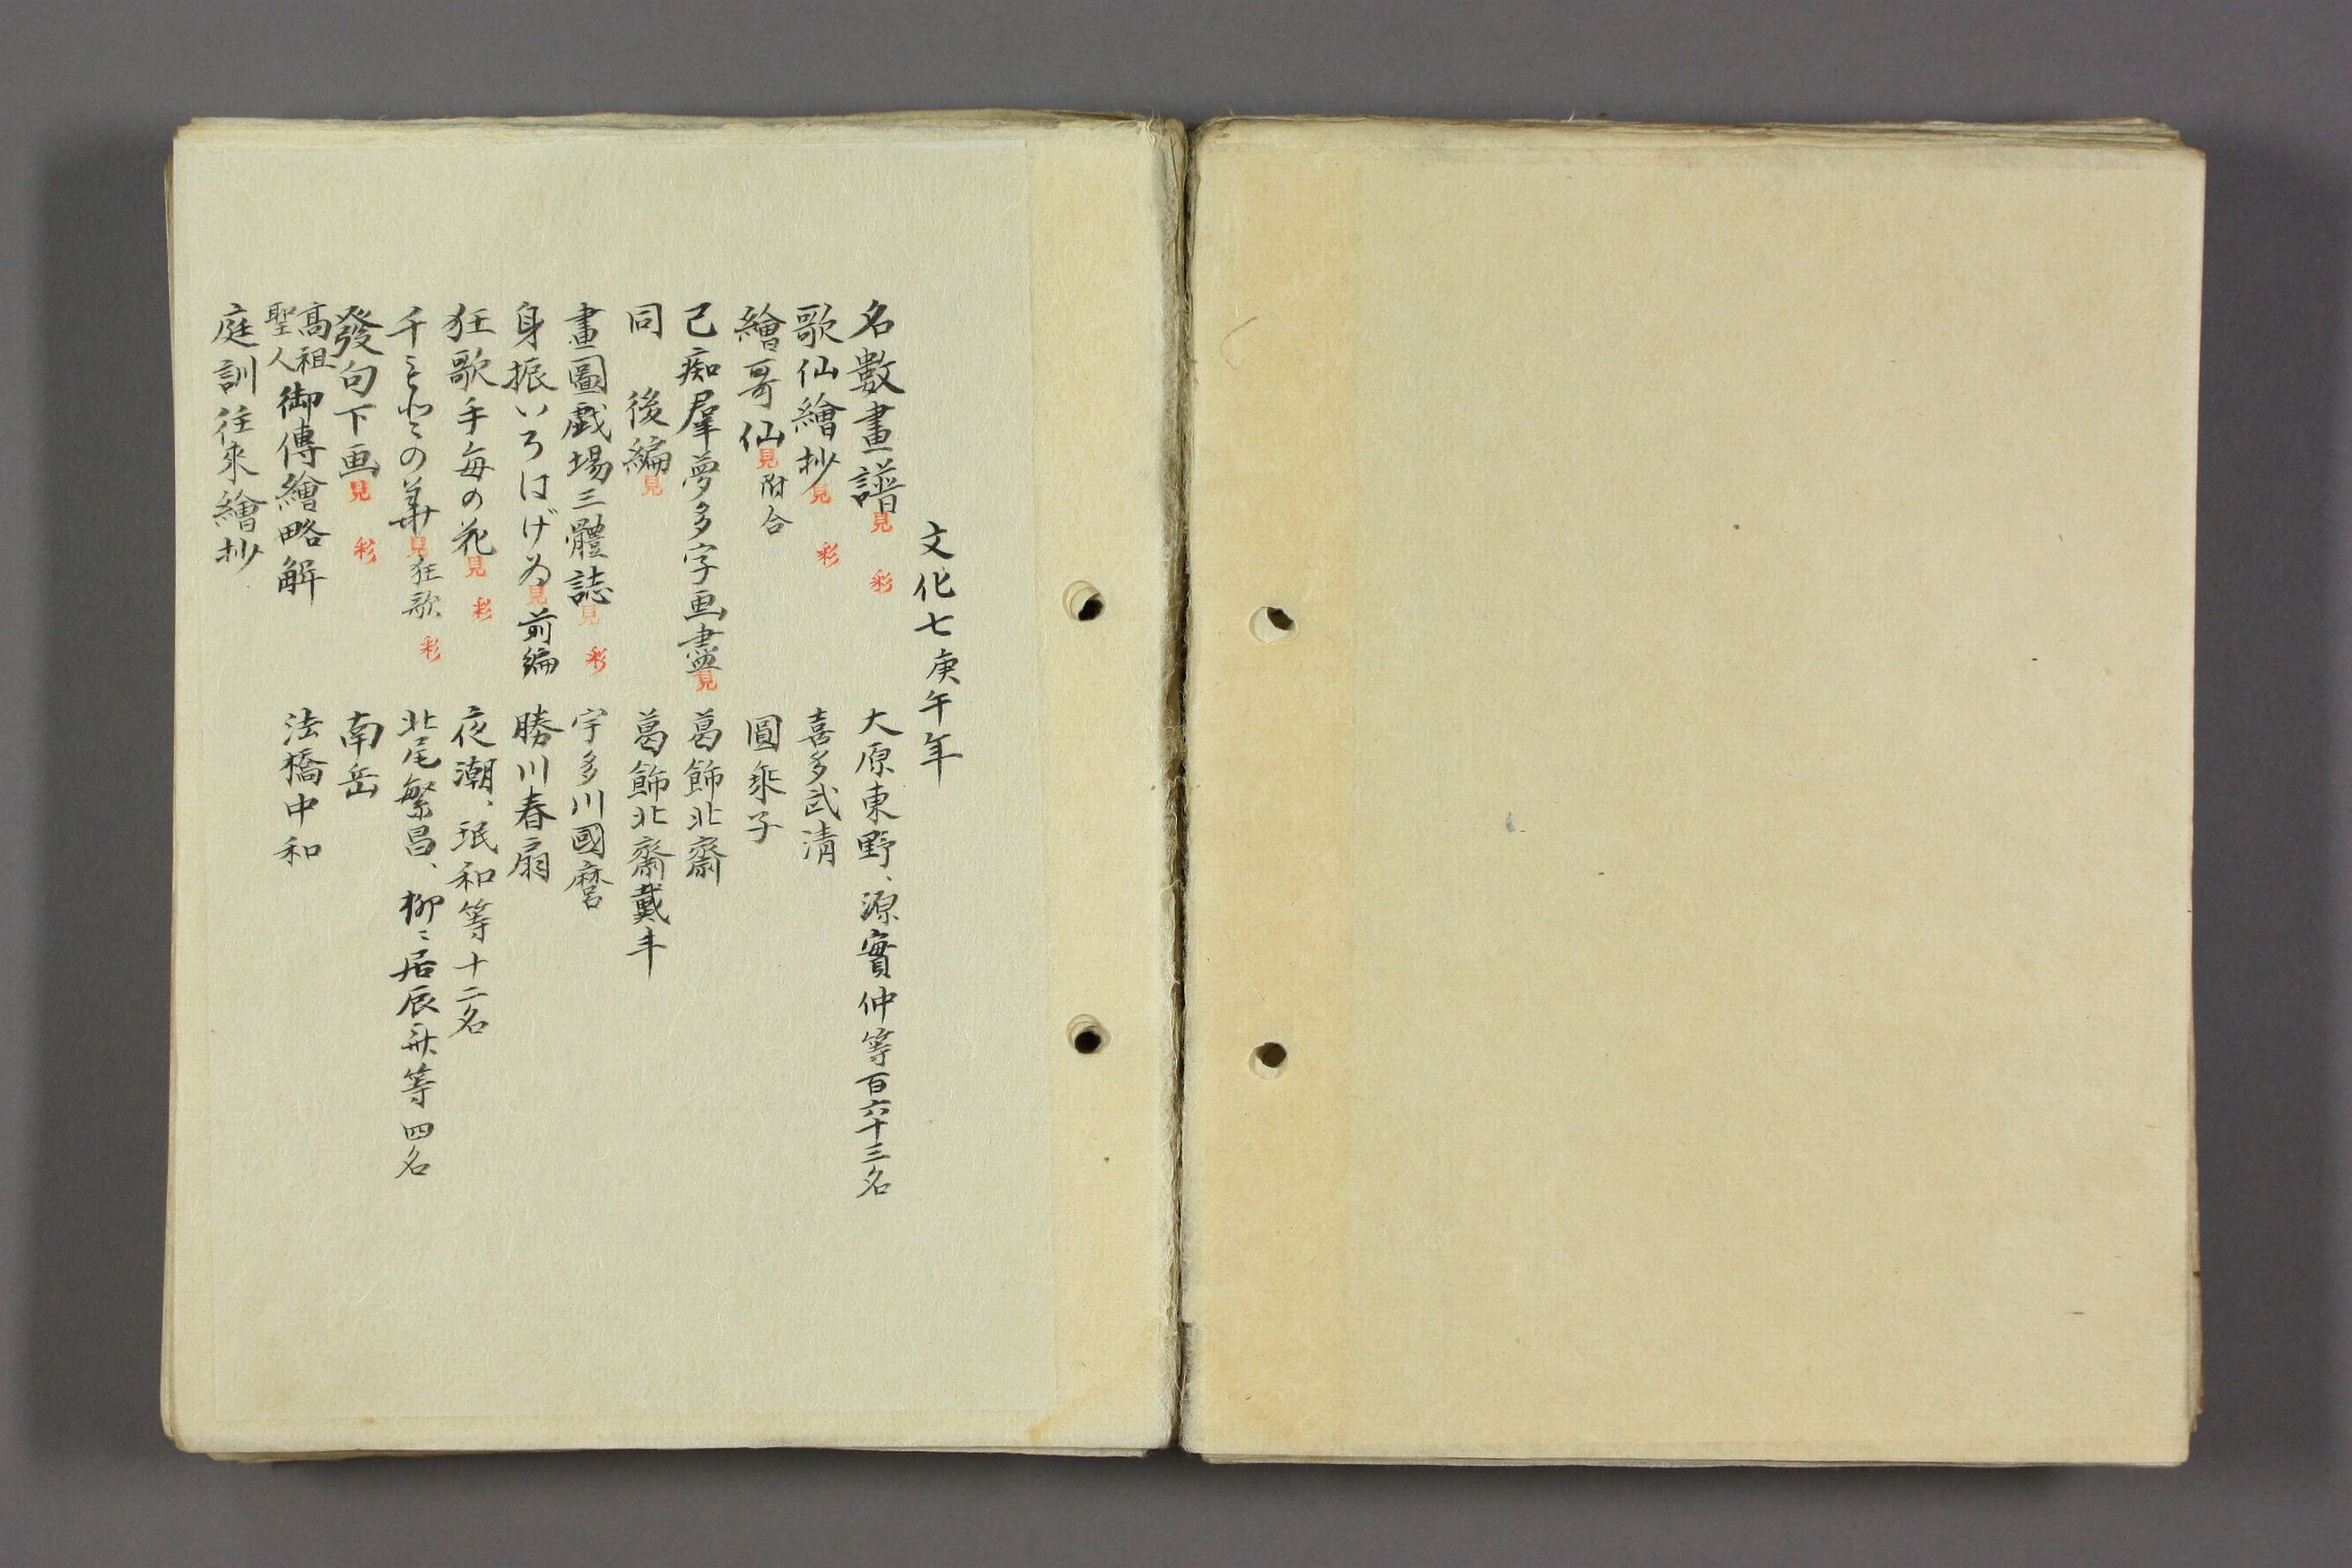 文化七庚午年
名數畫譜見 彩 大原東野、源實仲等百六十三名
歌仙繪抄見 彩 喜多武清
繪哥仙見附合 圓乘子
己痴羣夢多字画盡見 葛飾北齋
同 後編見 葛飾北齋戴斗
畫圖戯場三體誌見 彩 宇多川國麿
身振いろはげゐ見前編 勝川春扇
狂歌手毎の花見 彩 夜潮、珉和等十二名
の華見狂歌 彩 北尾繁昌、柳〻居辰斎等四名
發句下画見 彩 南岳
高祖聖人御傳繪略解 法橋中和
庭訓往來繪抄